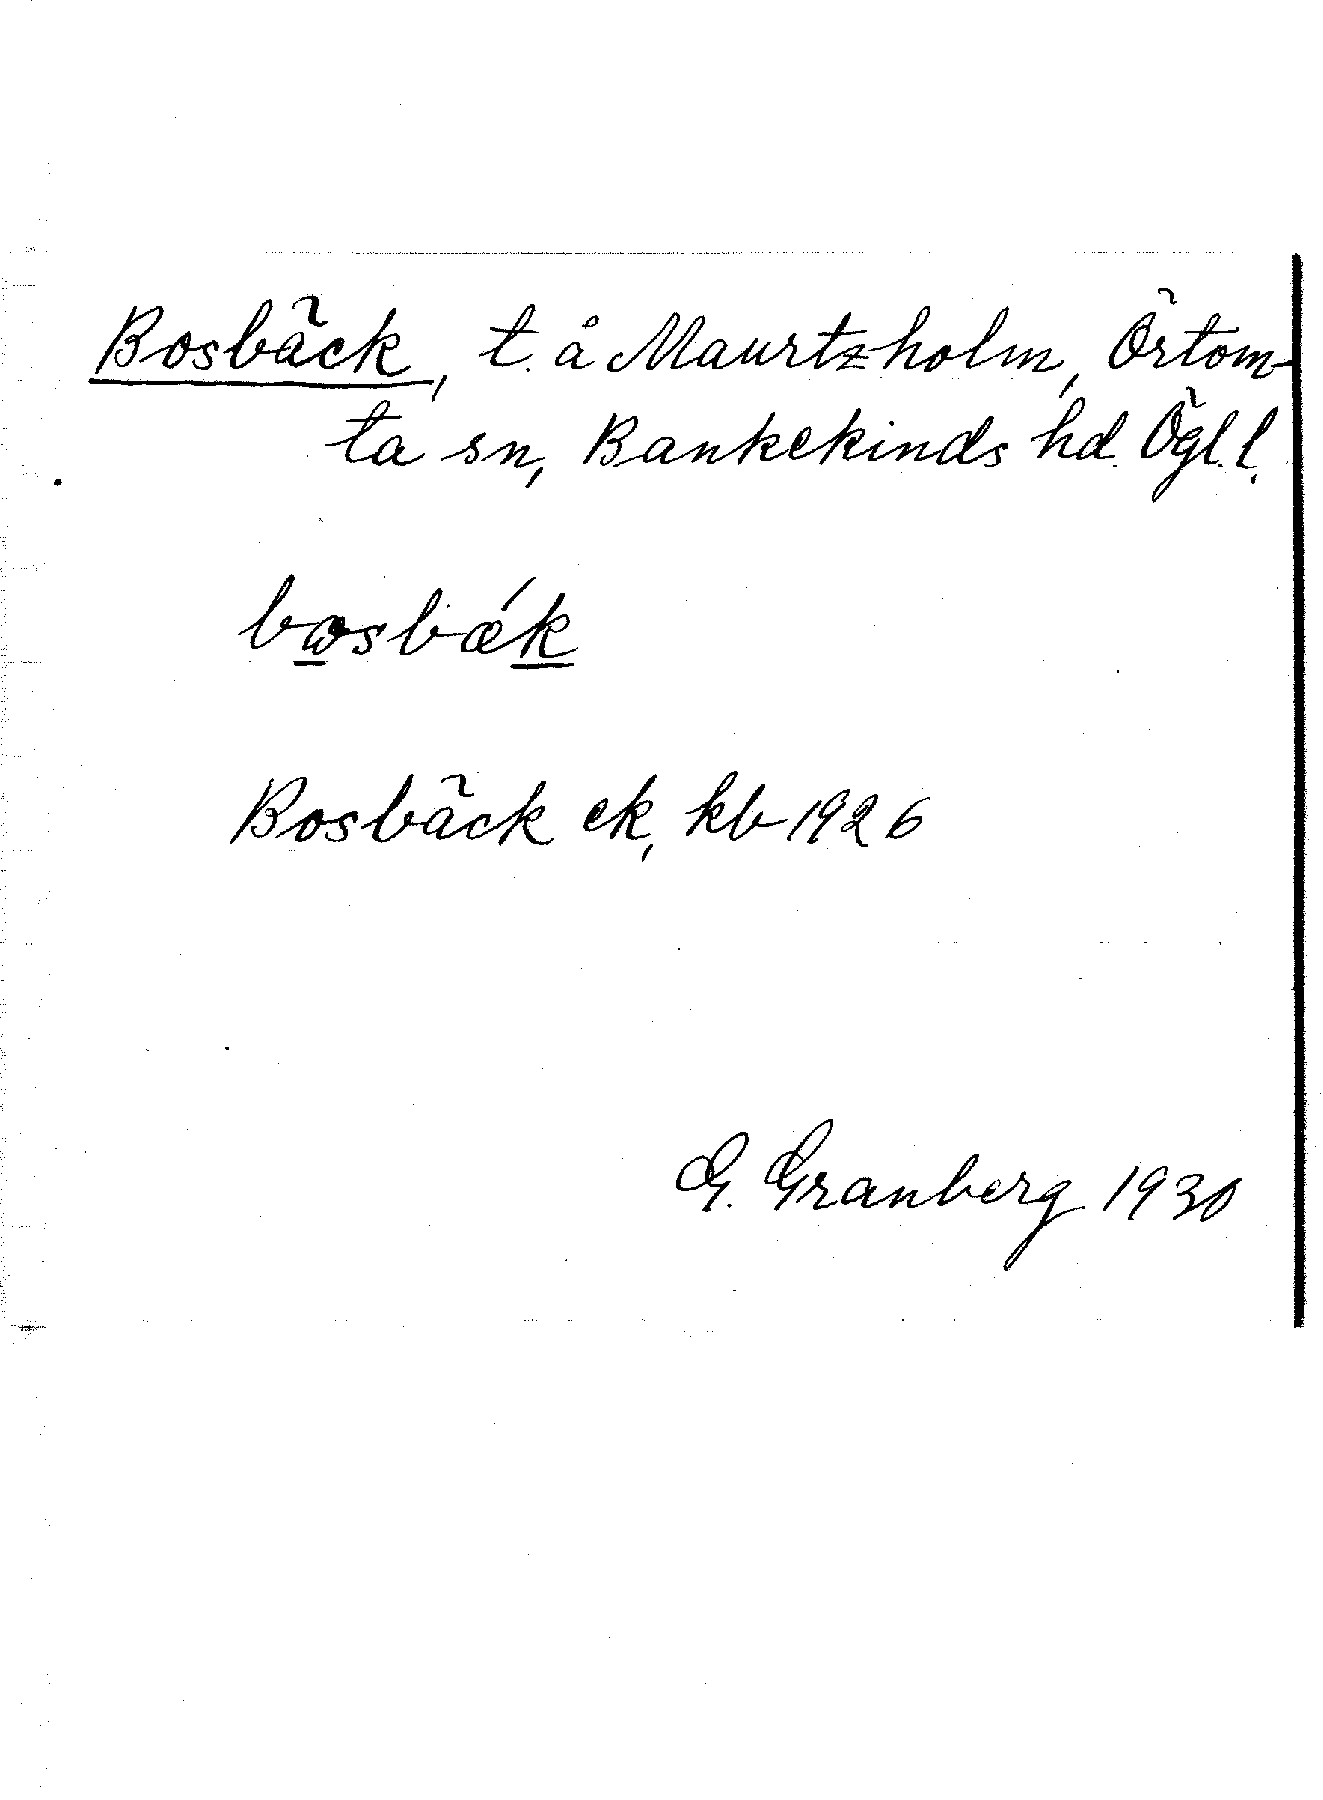 Bosbäck, t. å Maurtzholm, Örtom-
ta sn, Bankekinds hd. Ögl. l.
bosbæ´k
Bosbäck ek, kb 1926
G. Granberg 1930